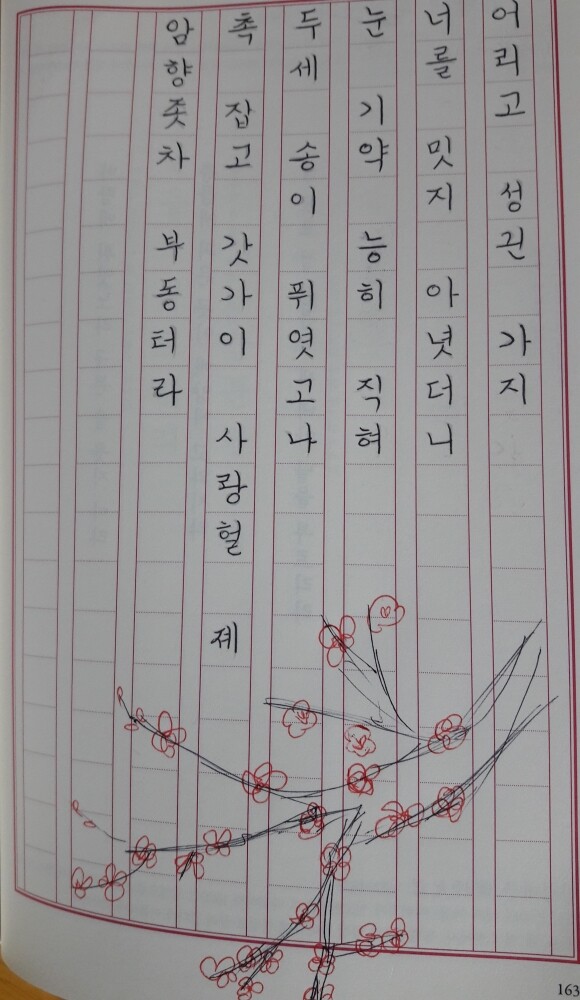 어리고 성긘 가지
너를 밋지 아녓더니
눈 기약 능히 직혀
두세 송이 퓌엿고나
촉 잡고 갓가이 사랑헐 졔
암향좃차 부동터라
163